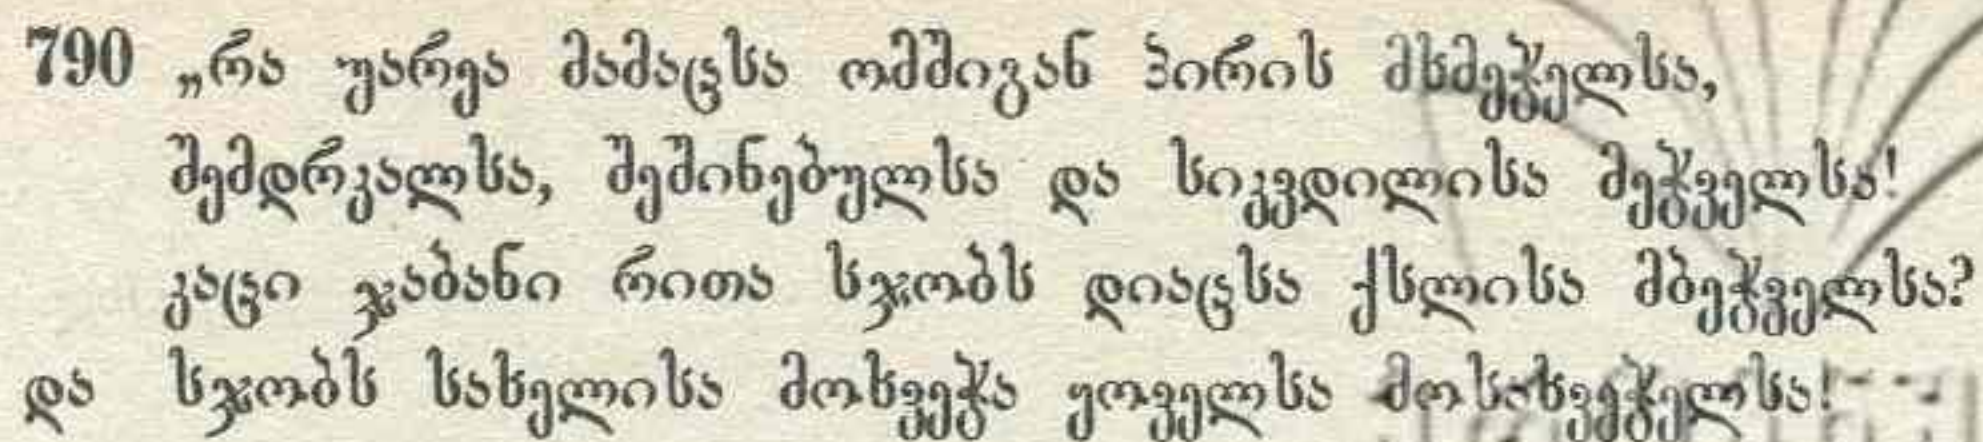 790 „რა უარეა მამაცსა ომშიგან პირის მხმეჭელსა,
შემდრკალსა, შეშინებულსა და სიკვდილისა მეჭველსა!
კაცი ჯაბანი რითა სჯობს დიაცსა ქსლისა მბეჭველსა?
და სჯობს სახელისა მოხვეჭა ყოველსა მოსახვეჭელსა!